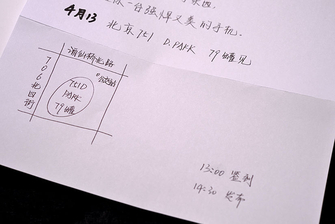 一台强悍又美的手机.
4月13
北京 751 D.PARK 79罐见
酒仙桥北路
706北四街
751D
PARK
79罐
13:00 签到
14:30 发布